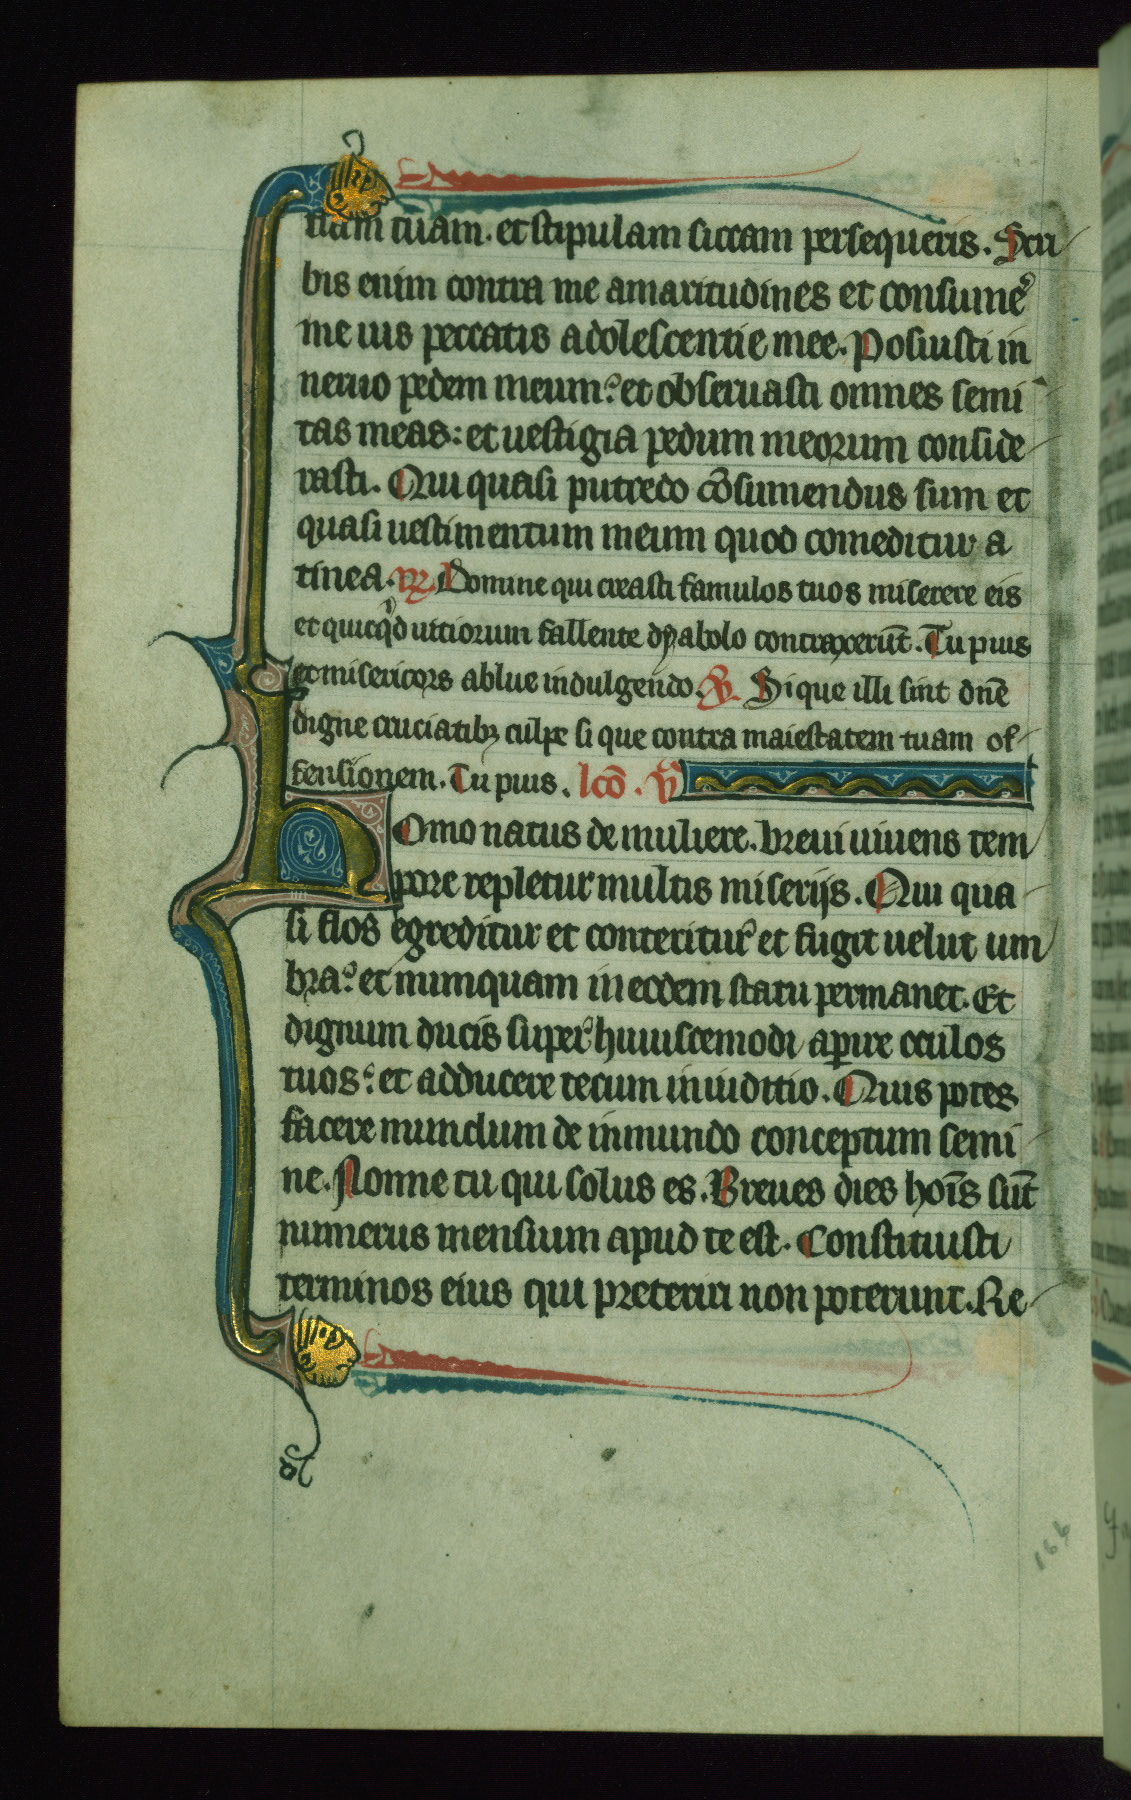 tiam tuam. et stipulam siccam persequeris. Scri
bis enim contra me amaritudines et consume᷑
me uis peccatis adolescentie mee. Posuisti in
neruo pedem meum: et obseruasti omnes semi
tas meas: et uestigia pedum meorum conside
rasti. Qui quasi putredo cōsumendus sum et
quasi uestimentum meum quod comeditur a
tinea. R. Domine qui creasti famulos tuos miserere eis
et quicq̄d uitiorum fallente dyabolo contraxerūt. Tu pius
et misericors ablue indulgendo. V. Si que illi sint dnē
digne cruciatibꝫ culpe si que contra maiestatem tuam of
fensionem. Tu pius. lcō. vi
Homo natus de muliere. breui uiuens tem
pore repletur multis miserijs. Qui qua
si flos egreditur et conteritur et fugit uelut um
bra: et nunquam in eodem statu permanet. Et
dignum ducis super huiuscemodi aperire oculos
tuos: et adducere tecum in iuditio. Quis potes
facere mundum de inmundo conceptum semi
ne. Nonne tu qui solus es. Breues dies hoīs sūt
numerus mensium apud te est. Constituisti
terminos eius qui preteriri non poterunt. Re
166